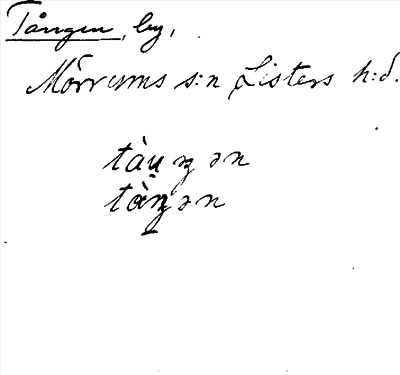 Tången, by,
Mörrums s:n Listers h:d.
tàu̯ŋən
tàŋən